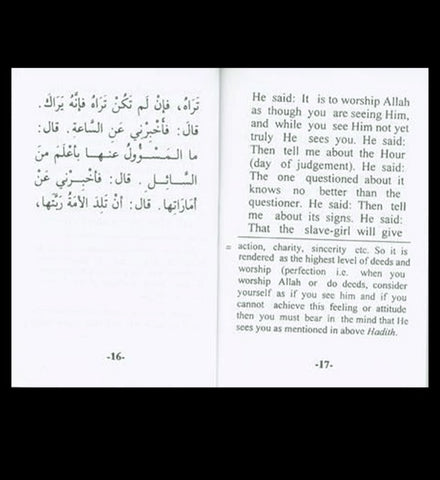 تَرَاهُ، فَإِنْ لَم تَكُنْ تَرَاهُ فَإِنَّه يَرَاكَ.
قالَ: فَأَخْبِرْنِي عَنِ السَّاعةِ. قال:
ما الـمَـسْـؤُولُ عنـهـا بـأَعْلَمَ مِنَ
السَّـائِـلِ. قال: فأَخْـبِـرْنِي عَنْ
أَمَارَاتِها. قال: أنْ تَلِدَ الأَمَةُ رَبَّتَها،
-16-
He said: It is to worship Allah
as though you are seeing Him,
and while you see Him not yet
truly He sees you. He said:
Then tell me about the Hour
(day of judgement). He said:
The one questioned about it
knows no better than the
questioner. He said: Then tell
me about its signs. He said:
That the slave-girl will give
= action, charity, sincerity etc. So it is
rendered as the highest level of deeds and
worship (perfection i.e. when you
worship Allah or do deeds, consider
yourself as if you see him and if you
cannot achieve this feeling or attitude
then you must bear in the mind that He
sees you as mentioned in above Hadith.
-17-